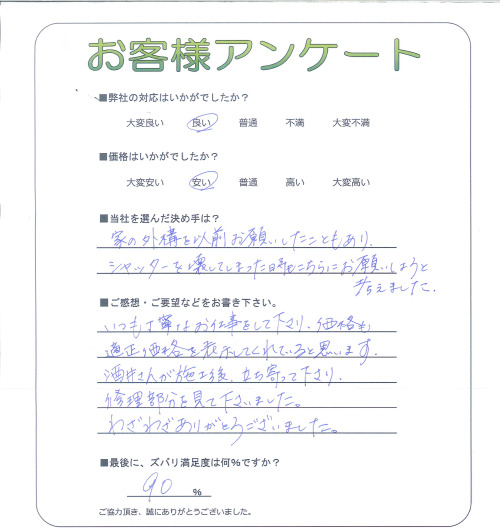 お客様アンケート
■弊社の対応はいかがでしたか？
大変良い 良い 普通 不満 大変不満
■価格はいかがでしたか？
大変安い 安い 普通 高い 大変高い
■当社を選んだ決め手は？
家の外構を以前お願いしたこともあり、
シャッターを壊してしまった時もこちらにお願いしようと
考えました。
■ご感想・ご要望などをお書き下さい。
いつも丁寧なお仕事をして下さり、価格も
適正価格を表示してくれていると思います。
酒井さんが施工後、立ち寄って下さり、
修理部分を見て下さいました。
わざわざありがとうございました。
■最後に、ズバリ満足度は何%ですか？
90 %
ご協力頂き、誠にありがとうございました。